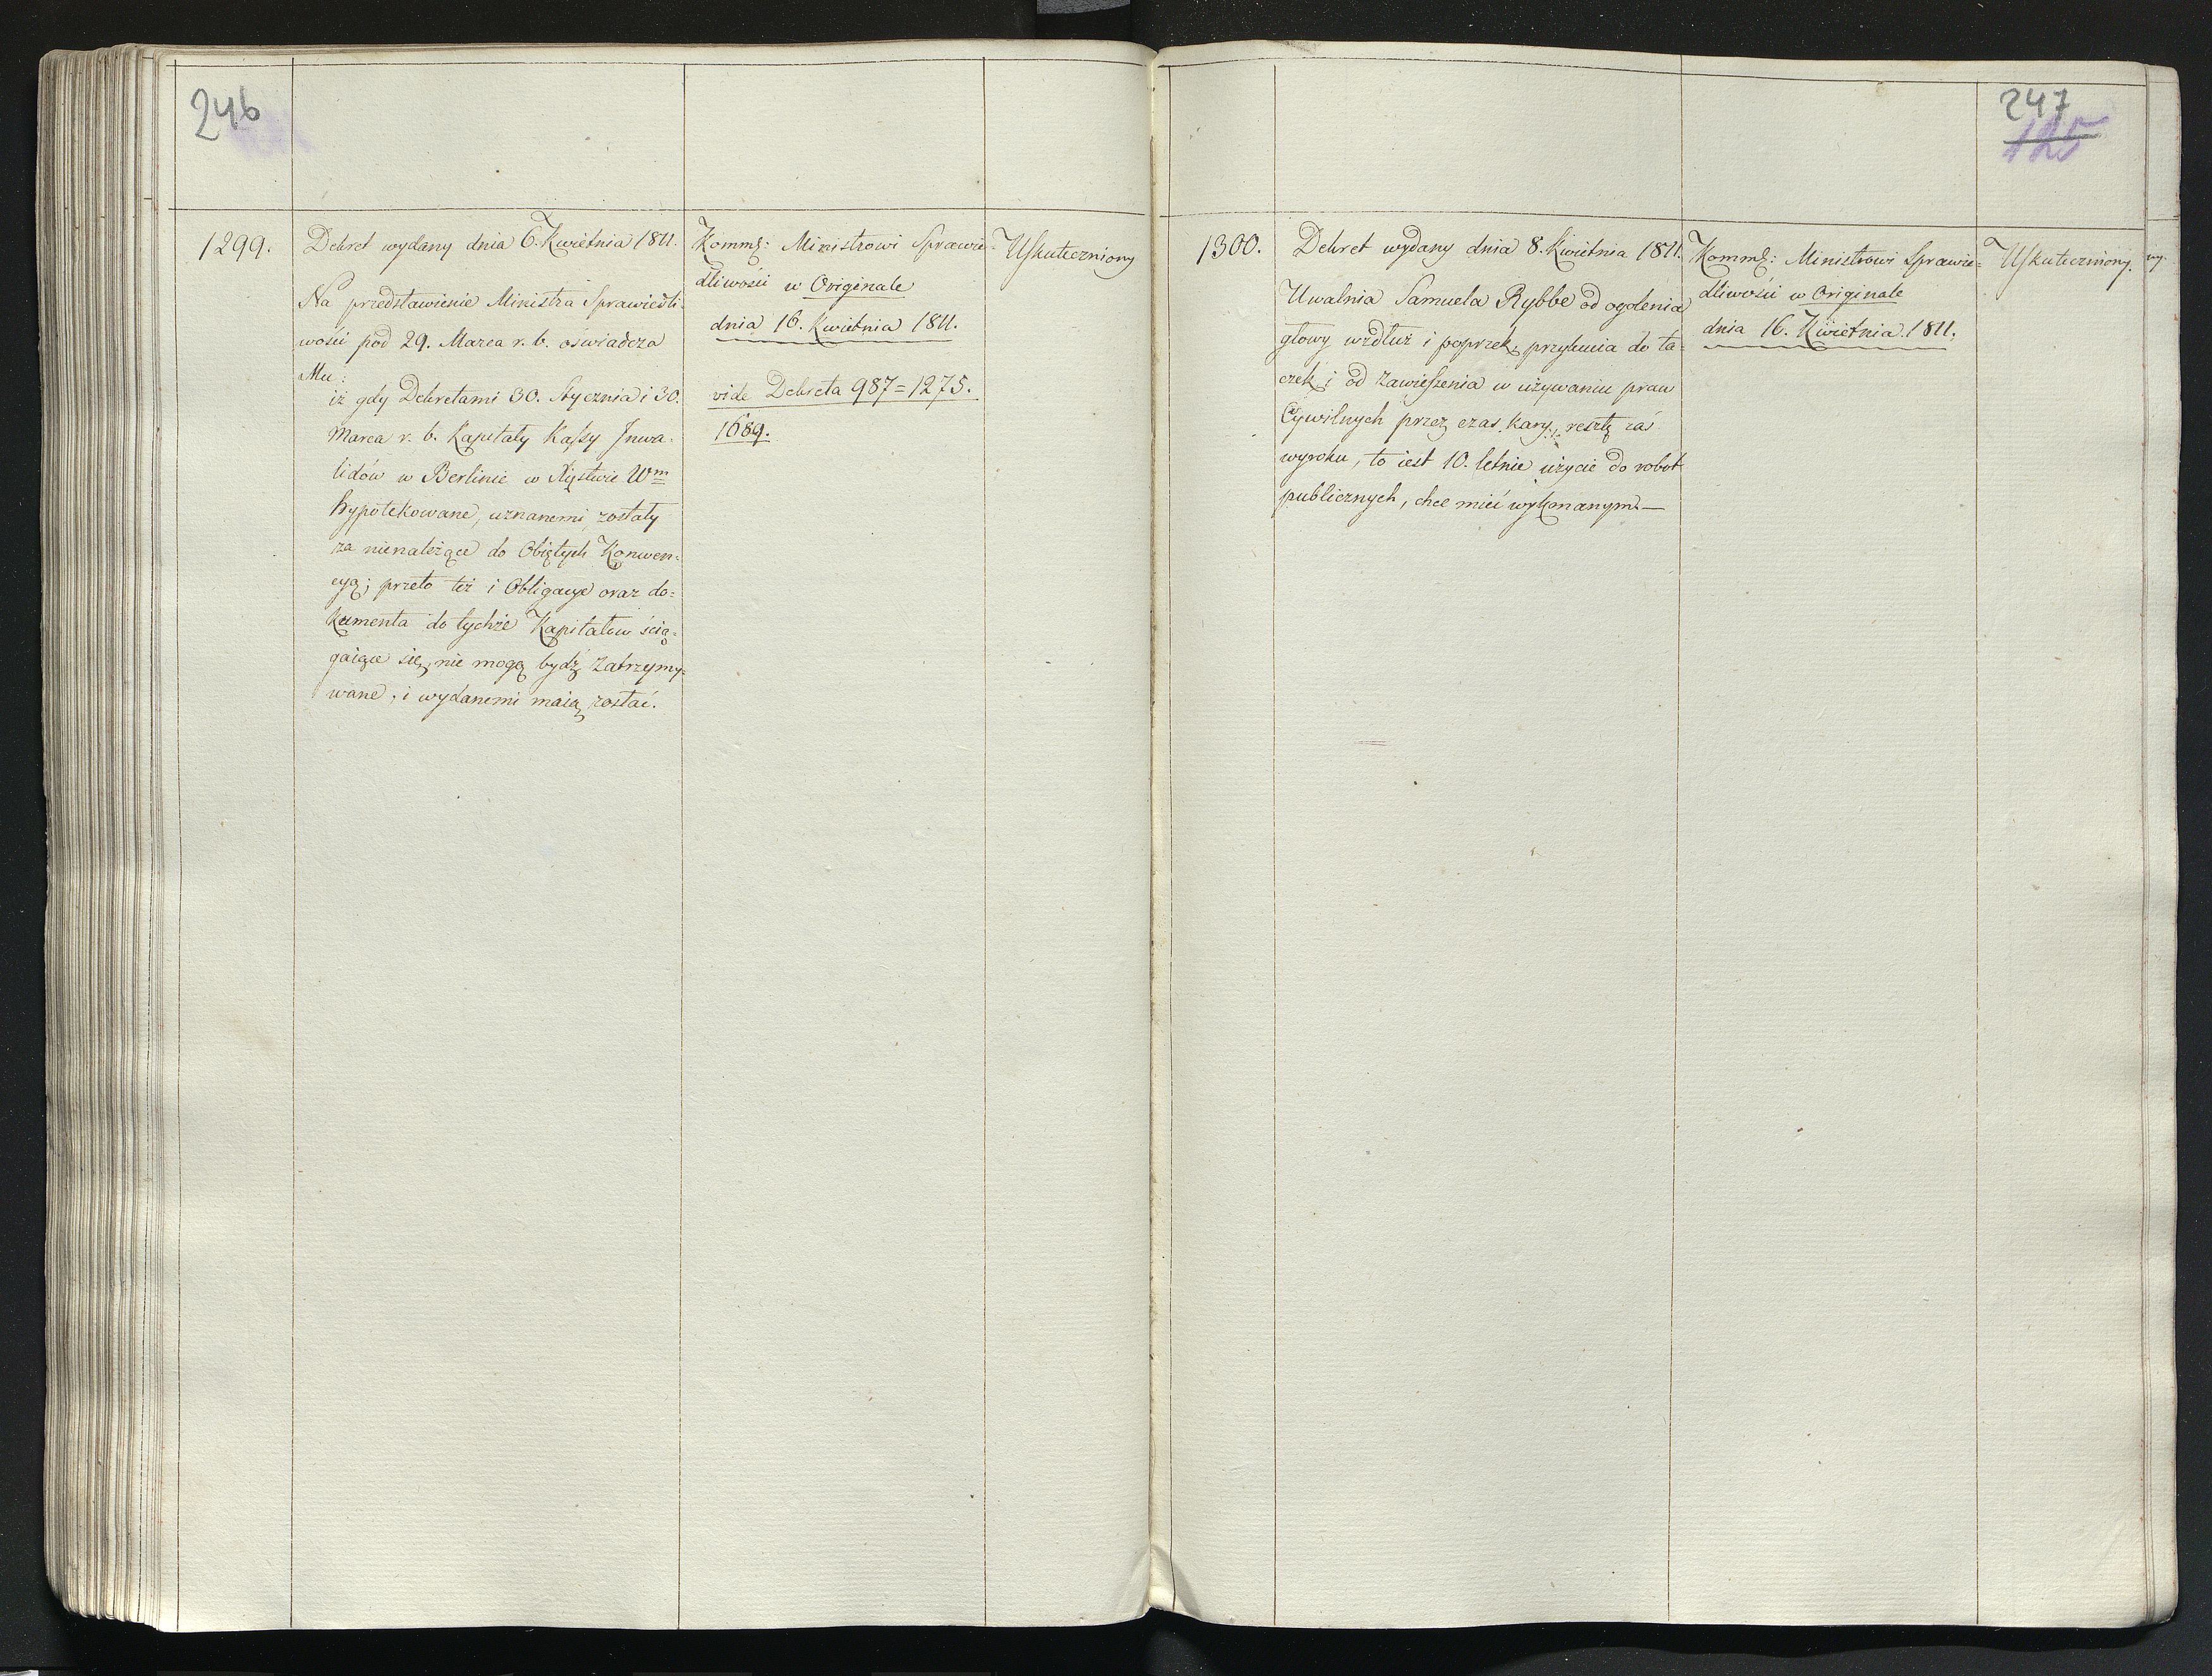 246
1299.
Dekret wydany dnia 6. Kwietnia 1811.
Na przedstawienie Ministra Sprawiedli-
wości pod 29. Marca r. b. oświadcza
Mu:
iż gdy Dekretami 30. Stycznia i 30.
Marca r. b. Kapitały Kassy Inwa-
lidów w Berlinie w Xięstwie Wm
hypotekowane, uznanemi zostały
za nienależące do Obiętych Konwen-
cyą; przeto też i Obligacye oraz do=
kumenta do tychże Kapitałow ścią=
gaiące się, nie mogą bydź zatrzymy-
wane, i wydanemi maią zostać.
Kommę: Ministrowi Sprawie-
dliwości w Originale
dnia 16. Kwietnia 1811.
vide Dekreta 987=1275.
1689.
Uskuteczniony
247
125
1300.
Dekret wydany dnia 8. Kwietnia 1811.
Uwalnia Samuela Rybbe od ogolenia
głowy wzdłuż i poprzek, przykucia do ta=
czek, i od zawieszenia w używaniu praw
Cywilnych przez czas kary, resztę zaś
wyroku, to iest 10. letnie użycie do robot
publicznych, chce mieć wykonanym.—
Kommę: Ministrowi Sprawie=
dliwości w Originale
dnia 16. Kwietnia. 1811.
Uskuteczniony.
ny.